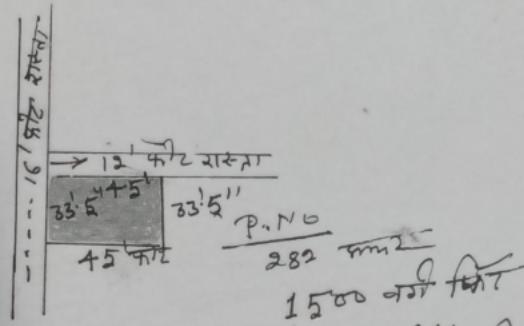 16' फीट रास्ता
→ 12' फीट रास्ता
45'
33'.5"
33'.5"
45' फीट
P.NO
282
1500 वर्ग फिट